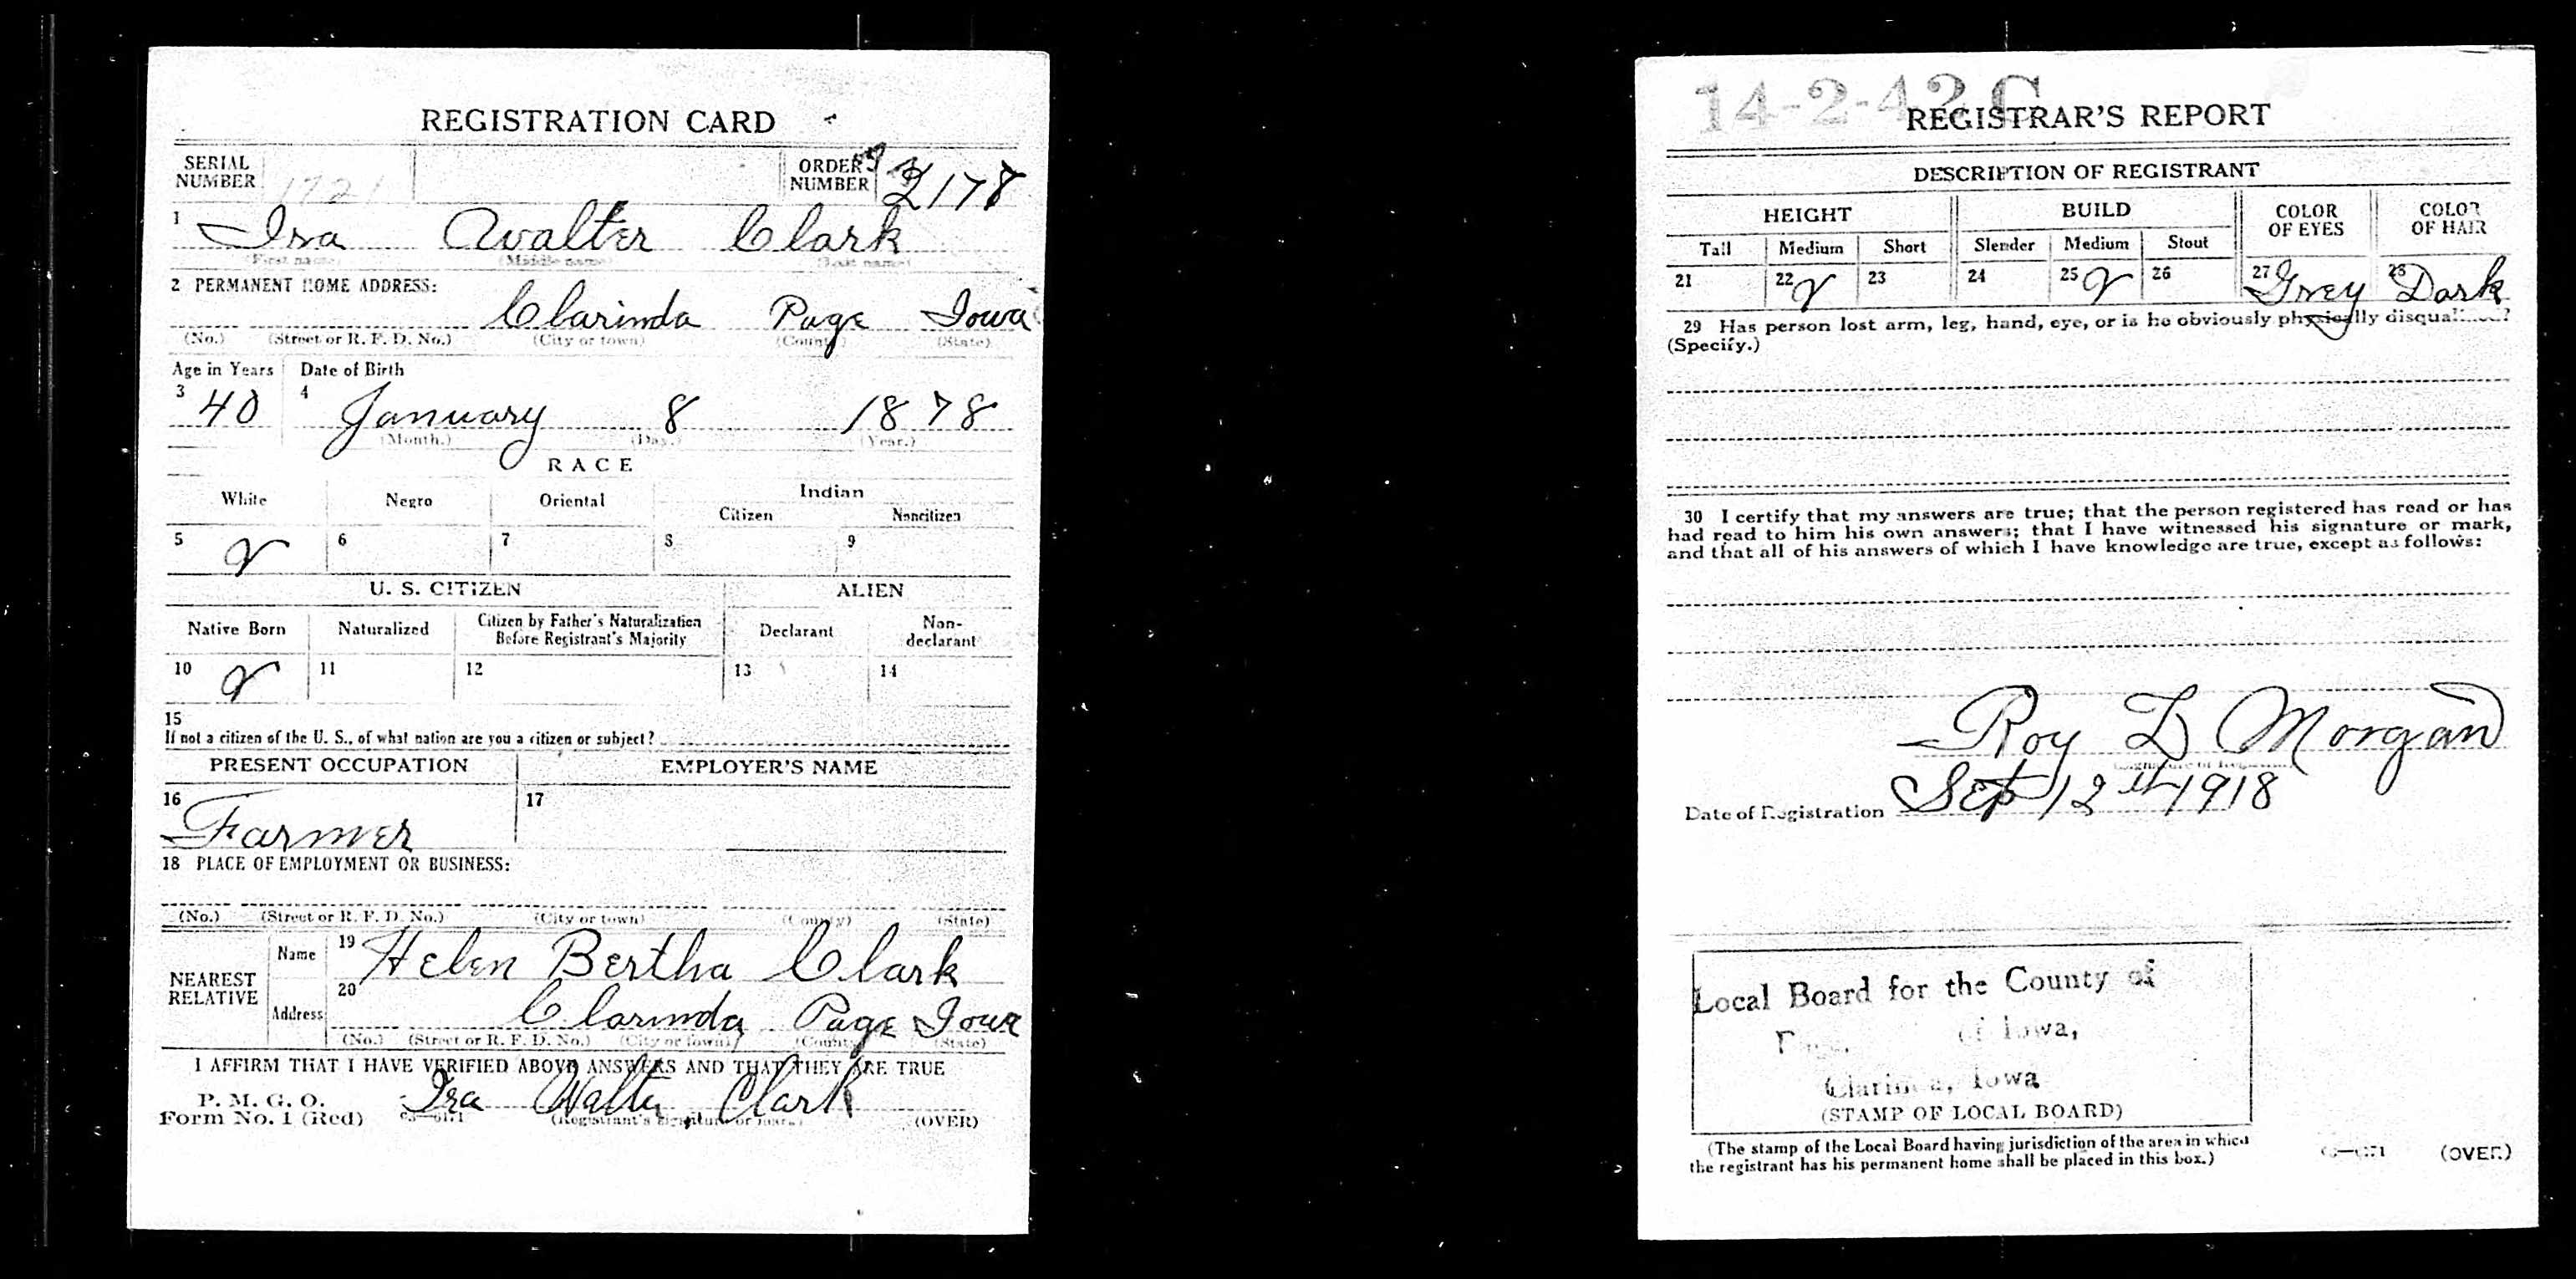 REGISTRATION CARD
SERIAL NUMBER 1721 ORDER NUMBER 2178
1 Ira Walter Clark
(First name) (Middle name) (Last name)
2 PERMANENT HOME ADDRESS:
Clarinda Page Iowa
(No.) (Street or R. F. D. No.) (City or town) (County) (State)
Age in Years Date of Birth
3 40 4 January 8 1878
(Month.) (Day.) (Year.)
RACE
White Negro Oriental Indian
Citizen Noncitizen
5 6 7 8 9
U. S. CITIZEN ALIEN
Native Born Naturalized Citizen by Father's Naturalization Before Registrant's Majority Declarant Non-declarant
10 11 12 13 14
15
If not a citizen of the U. S., of what nation are you a citizen or subject?
PRESENT OCCUPATION EMPLOYER'S NAME
16 17
Farmer
18 PLACE OF EMPLOYMENT OR BUSINESS:
(No.) (Street or R. F. D. No.) (City or town) (County) (State)
NEAREST RELATIVE
Name 19 Helen Bertha Clark
Address 20 Clarinda Page Iowa
(No.) (Street or R. F. D. No.) (City or town) (County) (State)
I AFFIRM THAT I HAVE VERIFIED ABOVE ANSWERS AND THAT THEY ARE TRUE
P. M. G. O.
Form No. 1 (Red) Ira Walter Clark
(Registrant's signature or mark) (OVER)
14-2-42 C
REGISTRAR'S REPORT
DESCRIPTION OF REGISTRANT
HEIGHT BUILD COLOR OF EYES COLOR OF HAIR
Tall Medium Short Slender Medium Stout
21 22 23 24 25 26 27 Grey 28 Dark
29 Has person lost arm, leg, hand, eye, or is he obviously physically disqualified?
(Specify.)
30 I certify that my answers are true; that the person registered has read or has
had read to him his own answers; that I have witnessed his signature or mark,
and that all of his answers of which I have knowledge are true, except as follows:
Roy L Morgan
Date of Registration Sept 12th 1918
Local Board for the County of
of Iowa,
Clarinda, Iowa
(STAMP OF LOCAL BOARD)
(The stamp of the Local Board having jurisdiction of the area in which
the registrant has his permanent home shall be placed in this box.)
(OVER)